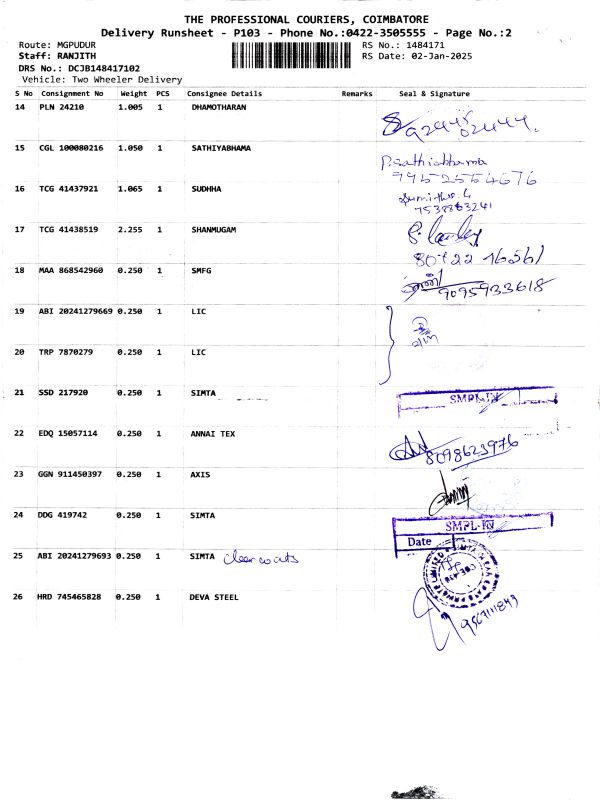 THE PROFESSIONAL COURIERS, COIMBATORE
Delivery Runsheet - P103 - Phone No.:0422-3505555 - Page No.:2
Route: MGPUDUR
RS No.: 1484171
Staff: RANJITH
RS Date: 02-Jan-2025
DRS No.: DCJB148417102
Vehicle: Two Wheeler Delivery
S No Consignment No Weight PCS Consignee Details Remarks Seal & Signature
14 PLN 24210 1.005 1 DHAMOTHARAN
15 CGL 100080216 1.050 1 SATHIYABHAMA
P.sathiabhama
9952554676
16 TCG 41437921 1.065 1 SUDHHA
7538863241
17 TCG 41438519 2.255 1 SHANMUGAM
18 MAA 868542960 0.250 1 SMFG
9095933618
19 ABI 20241279669 0.250 1 LIC
20 TRP 7870279 0.250 1 LIC
21 SSD 217920 0.250 1 SIMTA
SMPL-IN
22 EDQ 15057114 0.250 1 ANNAI TEX
8098623976
23 GGN 911450397 0.250 1 AXIS
24 DDG 419742 0.250 1 SIMTA
SMPL-IN
Date
25 ABI 20241279693 0.250 1 SIMTA
26 HRD 745465828 0.250 1 DEVA STEEL